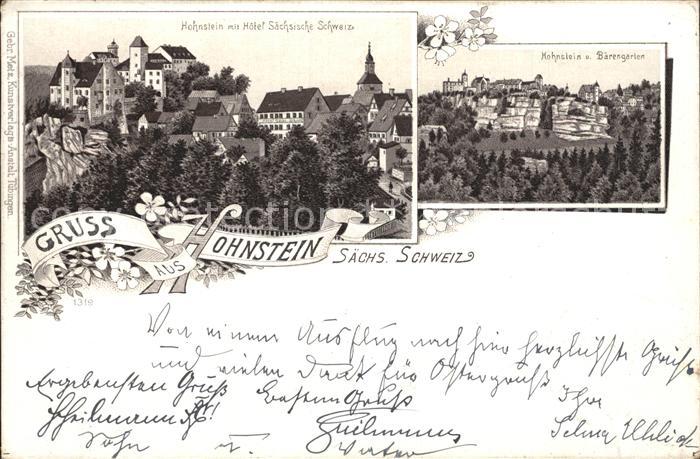 Hohnstein mit Hôtel Sächsische Schweiz
Hohnstein v. Bärengarten
Gebr. Metz, Kunstverlags-Anstalt, Tübingen.
GRUSS
AUS
HOHNSTEIN
SÄCHS. SCHWEIZ
1319
Von einem Ausflug nach hier herzlichste Grüße
und vielen Dank für Ostergruß
Ergebensten Gruß Besten Gruß Ihre
Selma
Sohn u. Vater